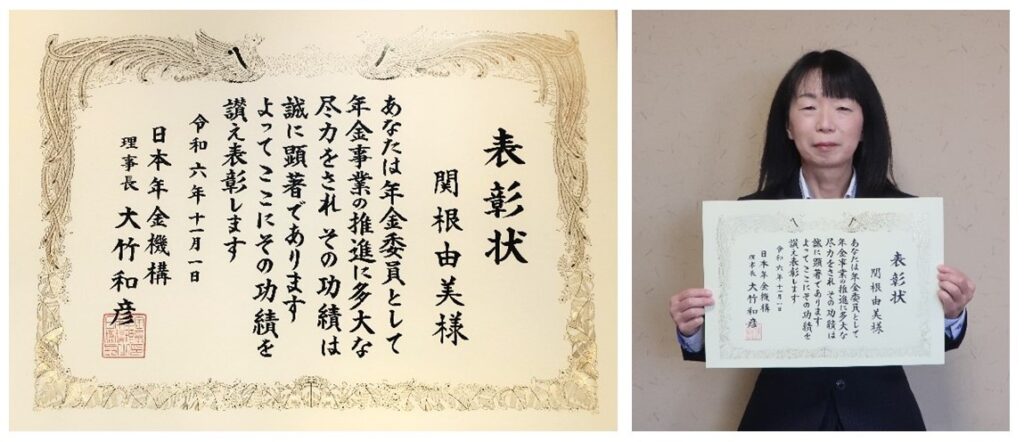 表彰状
関根由美様
あなたは年金委員として
年金事業の推進に多大な
尽力をされ その功績は
誠に顕著であります
よってここにその功績を
讃え表彰します
令和六年十一月一日
日本年金機構
理事長 大竹和彦
表彰状
関根由美様
あなたは年金委員として
年金事業の推進に多大な
尽力をされ その功績は
誠に顕著であります
よってここにその功績を
讃え表彰します
令和六年十一月一日
日本年金機構
理事長 大竹和彦